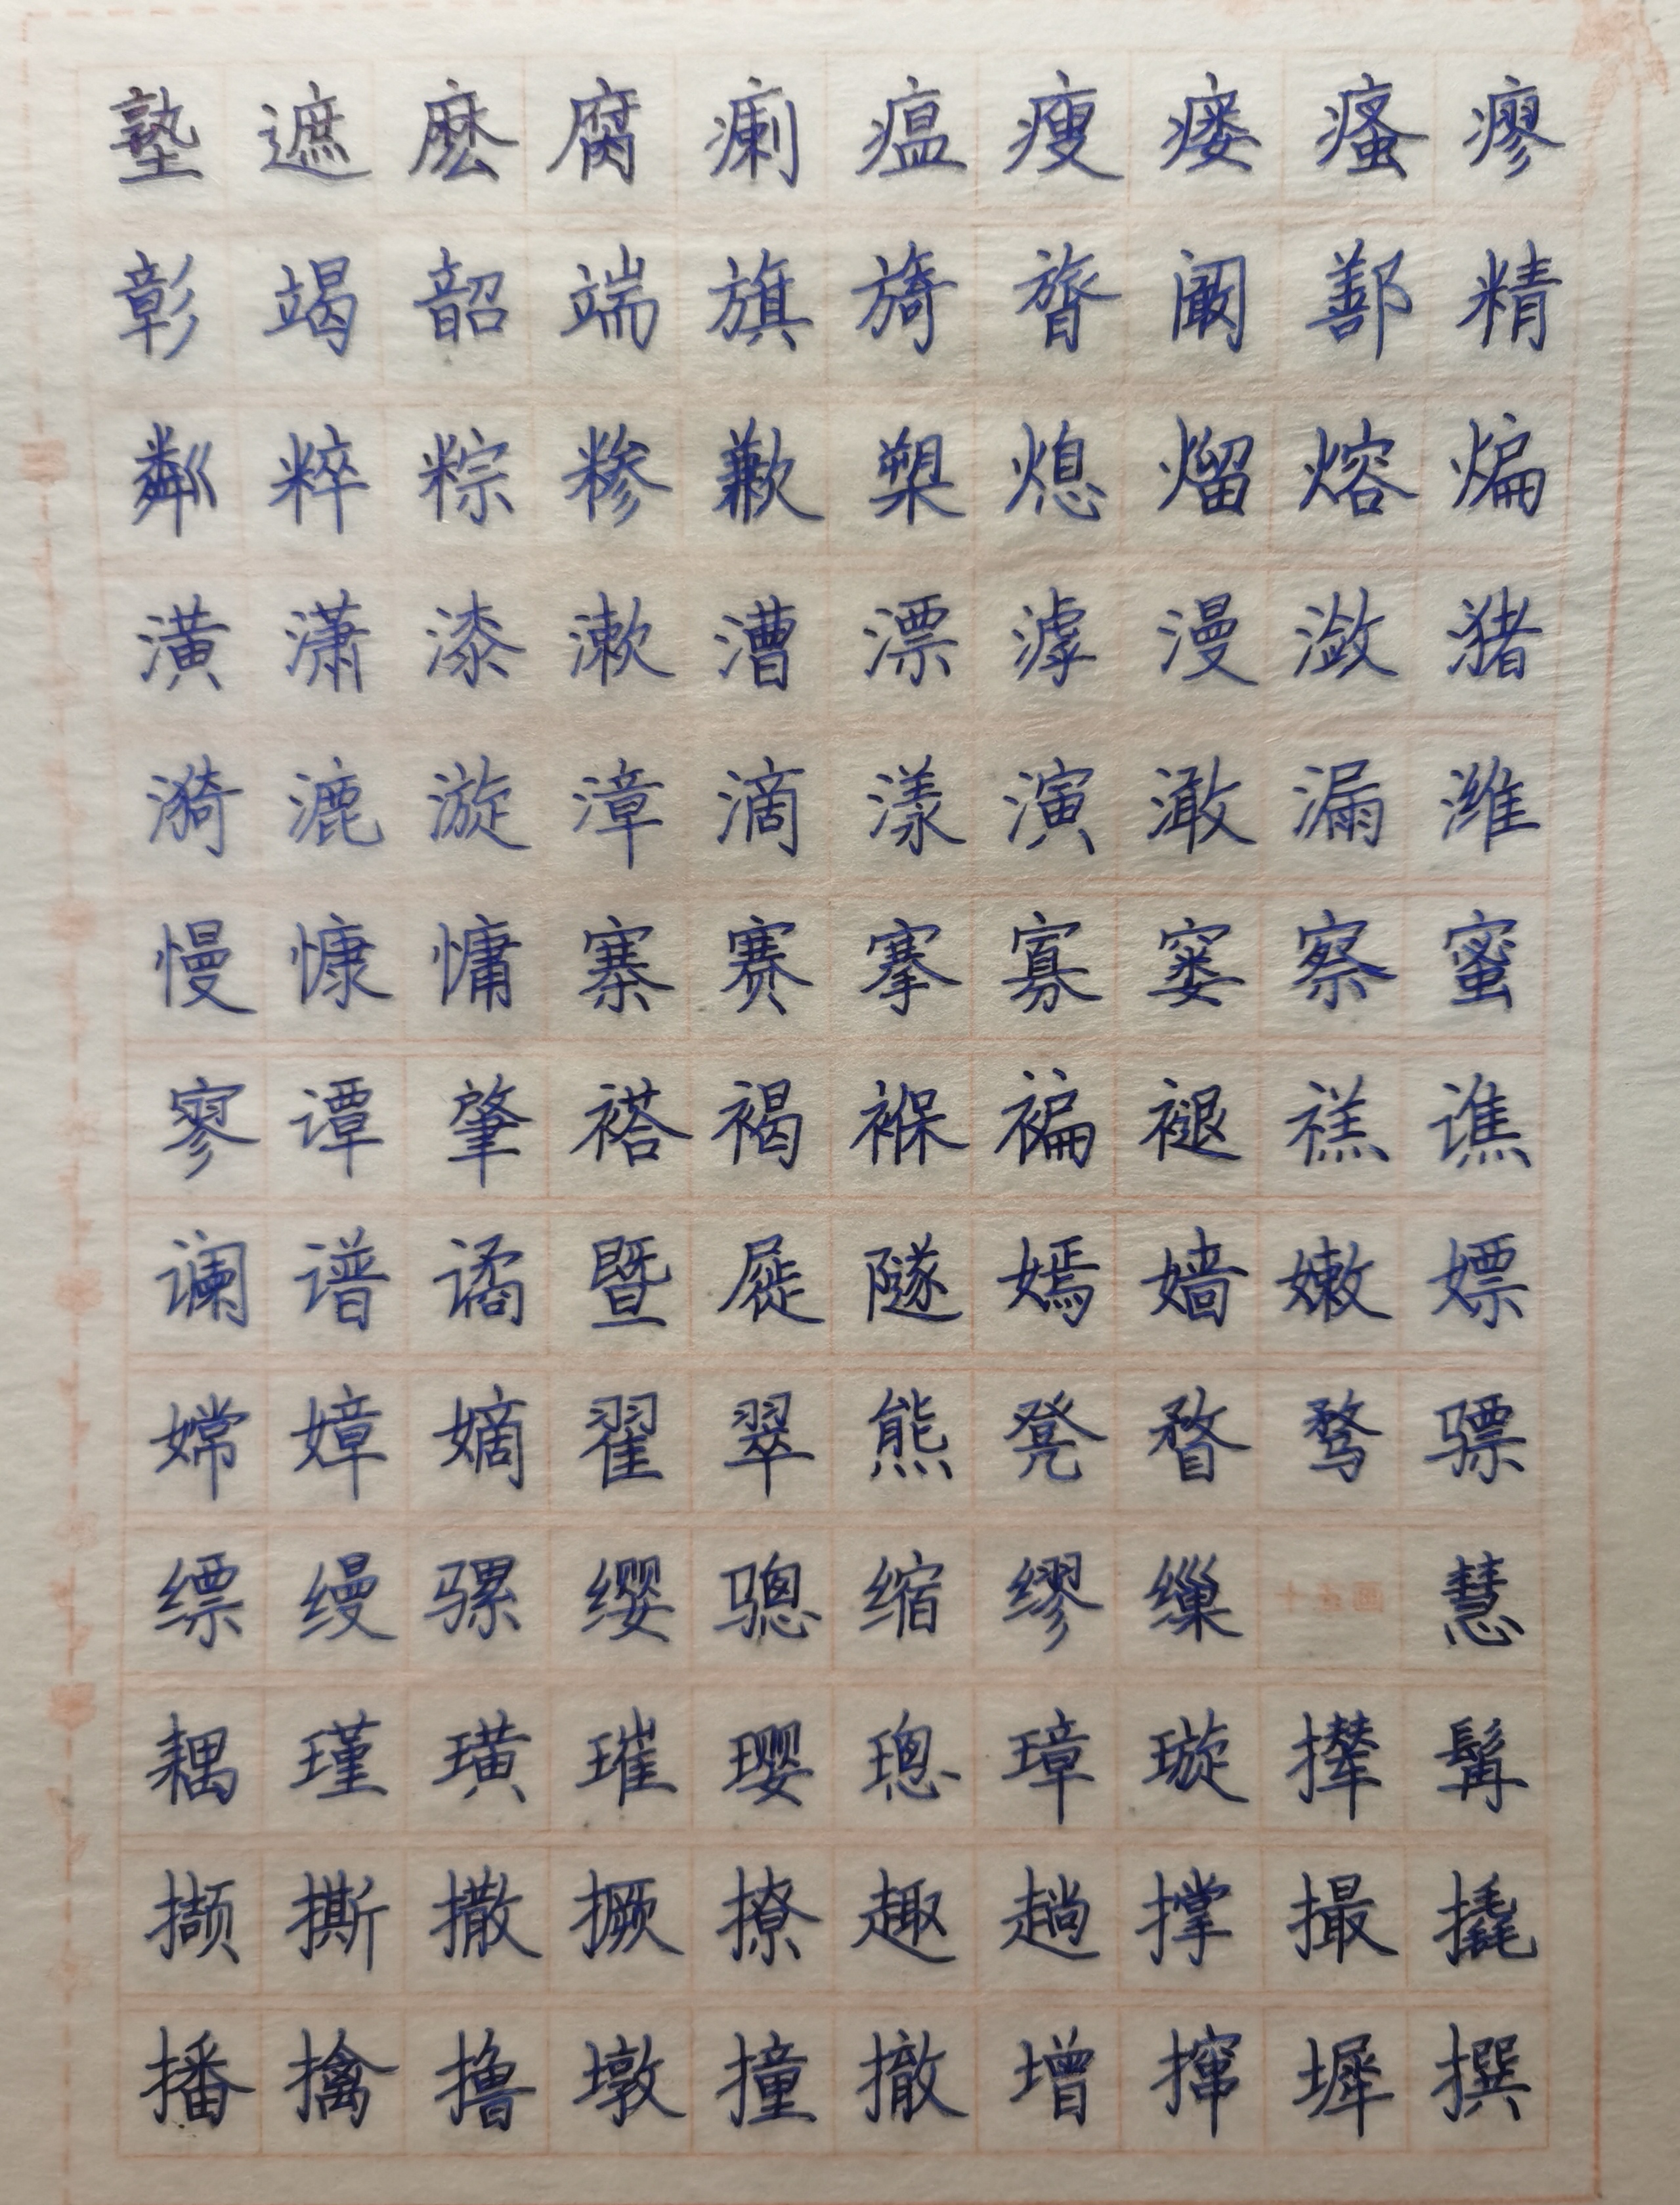 塾遮麽腐瘌瘟瘦瘘瘙瘳
彰竭韶端旗旖膂阚鄯精
粼粹粽糁歉槊熄熘熔煸
潢潇漆漱漕漂滹漫潋猪
漪漉漩漳滴漾演澉漏潍
慢慷慵寨赛搴寡窭察蜜
寥谭肇褡褐褓褊褪禚谯
谰谱谲暨屣隧嫣嫱嫩嫖
嫦嫜嫡翟翠熊凳瞀鹜骠
缥缦骡缨骢缩缪缫十五画慧
耦瑾璜璀璎璁璋璇撵髯
撷撕撒撅撩趣趟撑撮撬
播擒撸墩撞撤增撺墀撰